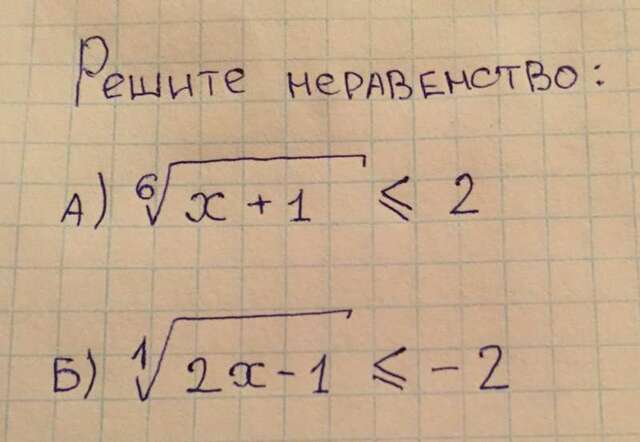 Решите неравенство:
А) ⁶√(x + 1) ⩽ 2
Б) ¹√(2x - 1) ⩽ - 2